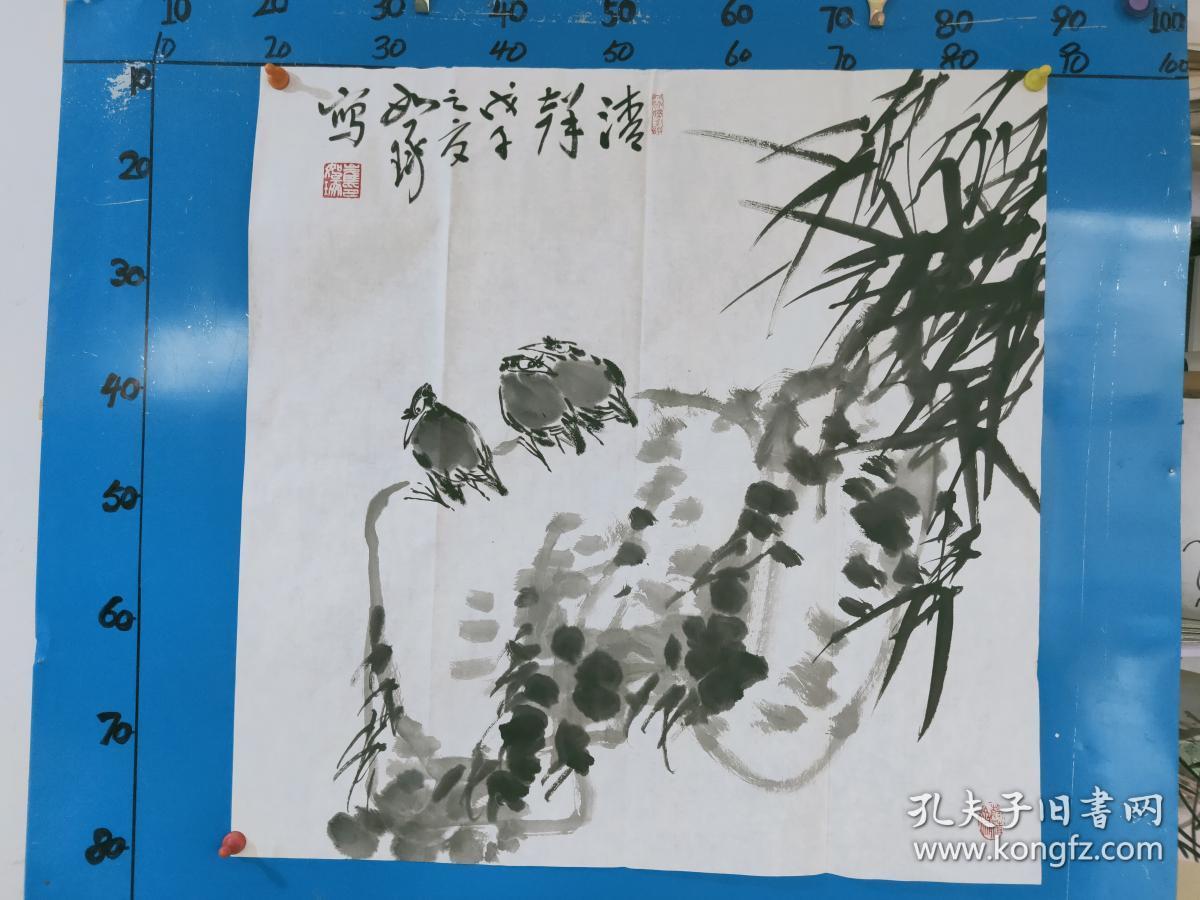 10 20 30 40 50 60 70 80 90 100
10 20 30 40 50 60 70 80 90 100
10
20
30
40
50
60
70
80
清
群
戊子
之夏
如琢
寫
孔夫子旧書网
www.kongfz.com